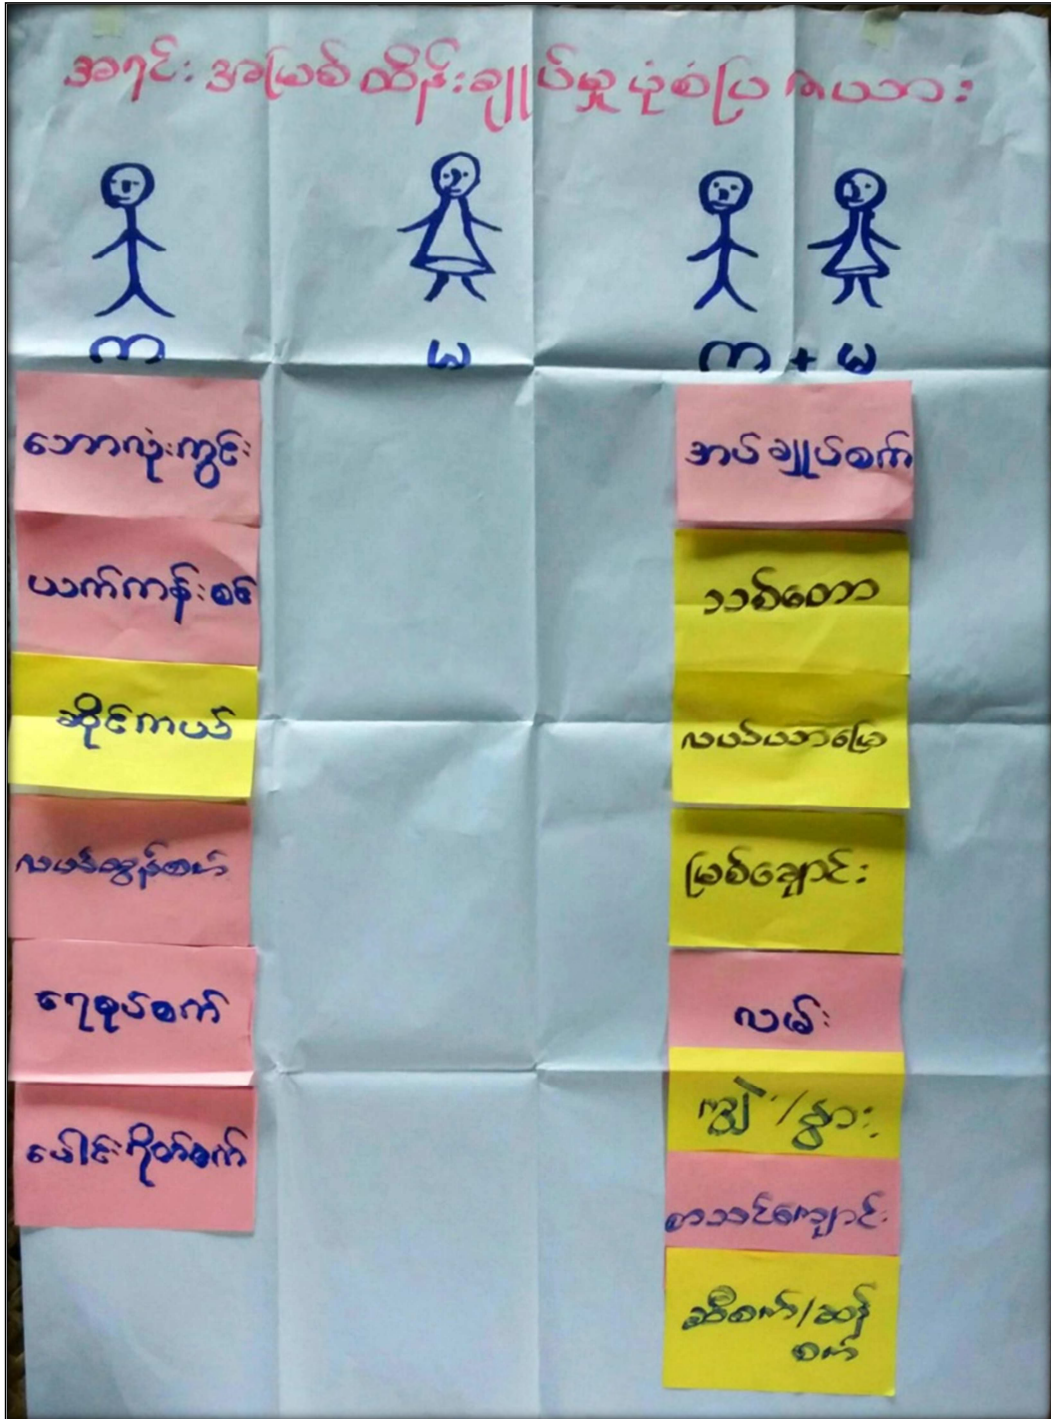 အရင်းအမြစ်ထိန်းချုပ်မှုပုံစံပြဇယား
က
မ
က + မ
ဘောလုံးကွင်း
ယက်ကန်းစင်
ဆိုင်ကယ်
လယ်ထွန်စက်
ရေစုပ်စက်
ခေါင်းရိုတ်စက်
အပ်ချုပ်စက်
သစ်တော
လယ်ယာမြေ
မြစ်ချောင်း
လမ်း
ကျွဲ/နွား
စာသင်ကျောင်း
ဆီစက်/ဆန်
စက်